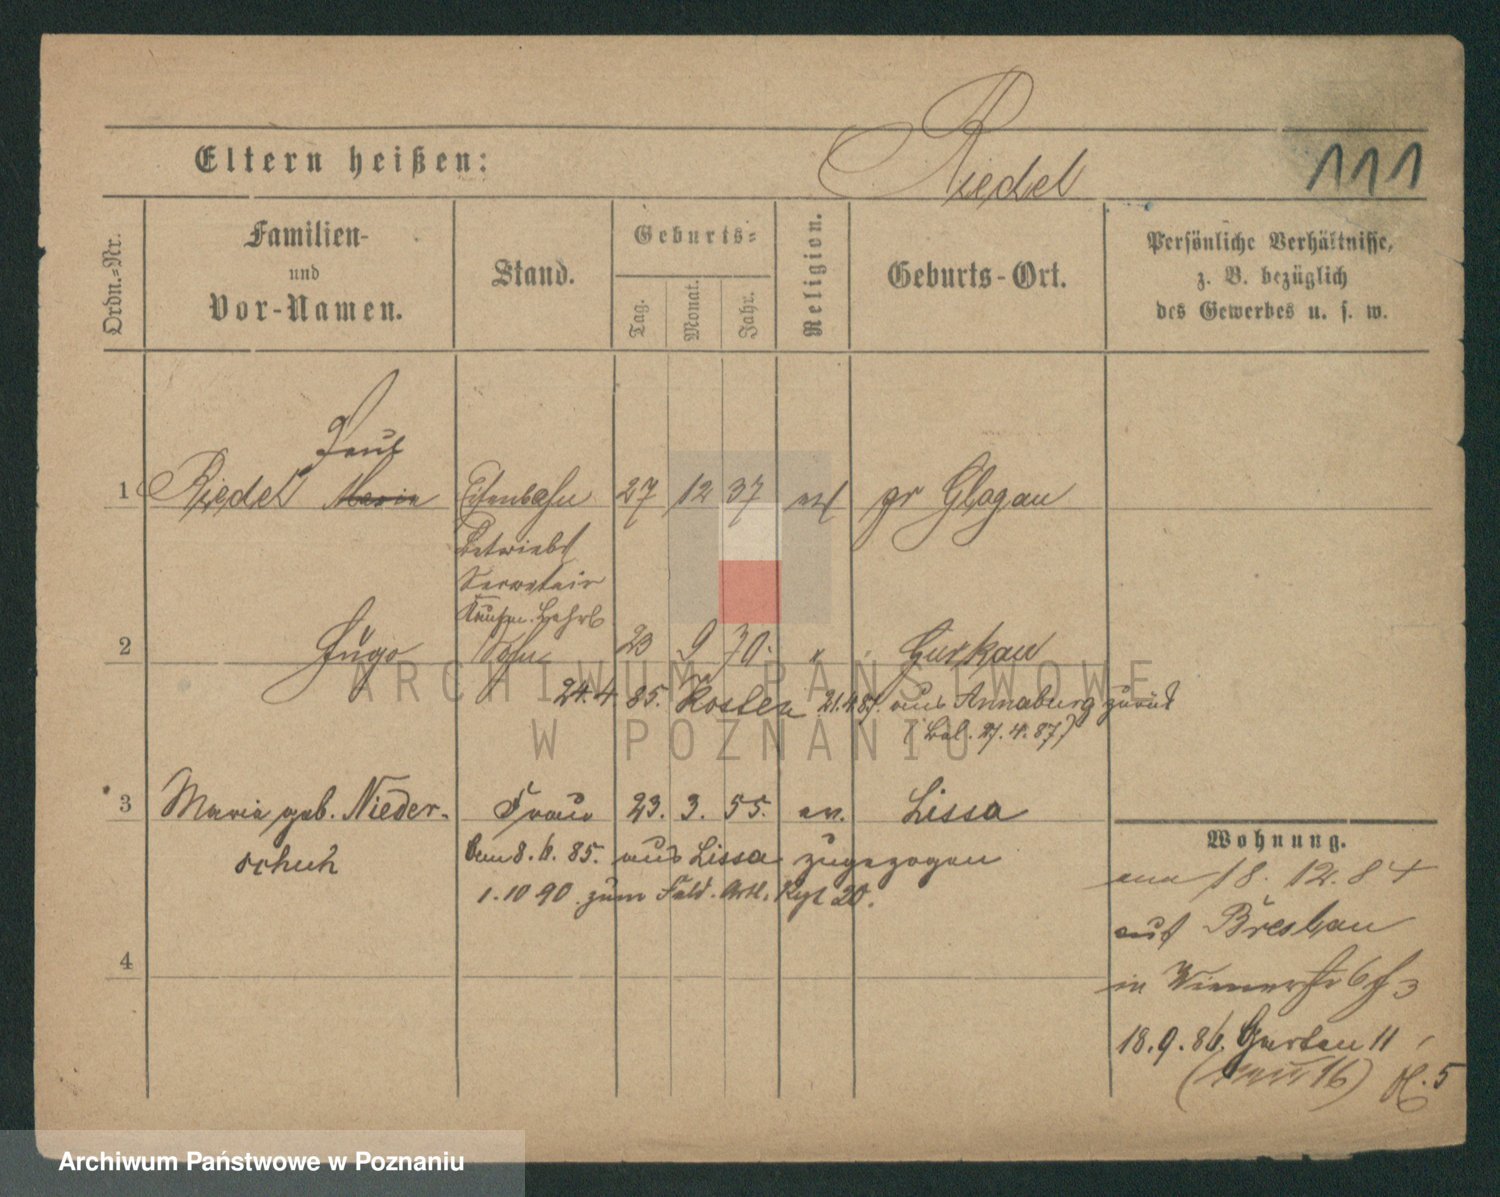 Riedel
111
Eltern heißen:
Ordn.-Nr.
Familien-
und
Vor-Namen.
Stand.
Geburts-
Tag.
Monat.
Jahr.
Religion.
Geburts-Ort.
Persönliche Verhältnisse,
z. B. bezüglich
des Gewerbes u. s. w.
Paul
1 Riedel Maria Eisenbahn 27 12 37 ev gr Glogau
Betriebs
Secretair
Kaufm. Lehrl
2 Hugo Sohn 23 9 70. " Gurkau
24.4 85. Kosten 21.4.87. aus Annaburg zurück
21.4.87)
3 Maria geb. Nieder- Frau 23. 3. 55. ev. Lissa
schuh
8.6.85. aus Lissa zugezogen
1.10 90 zum Feld. Artl. Rgt 20.
4
Wohnung.
am 18. 12. 84
aus Breslau
in 6
18.9.86. Garten 11
16) 5
ARCHIWUM PAŃSTWOWE
W POZNANIU
Archiwum Państwowe w Poznaniu